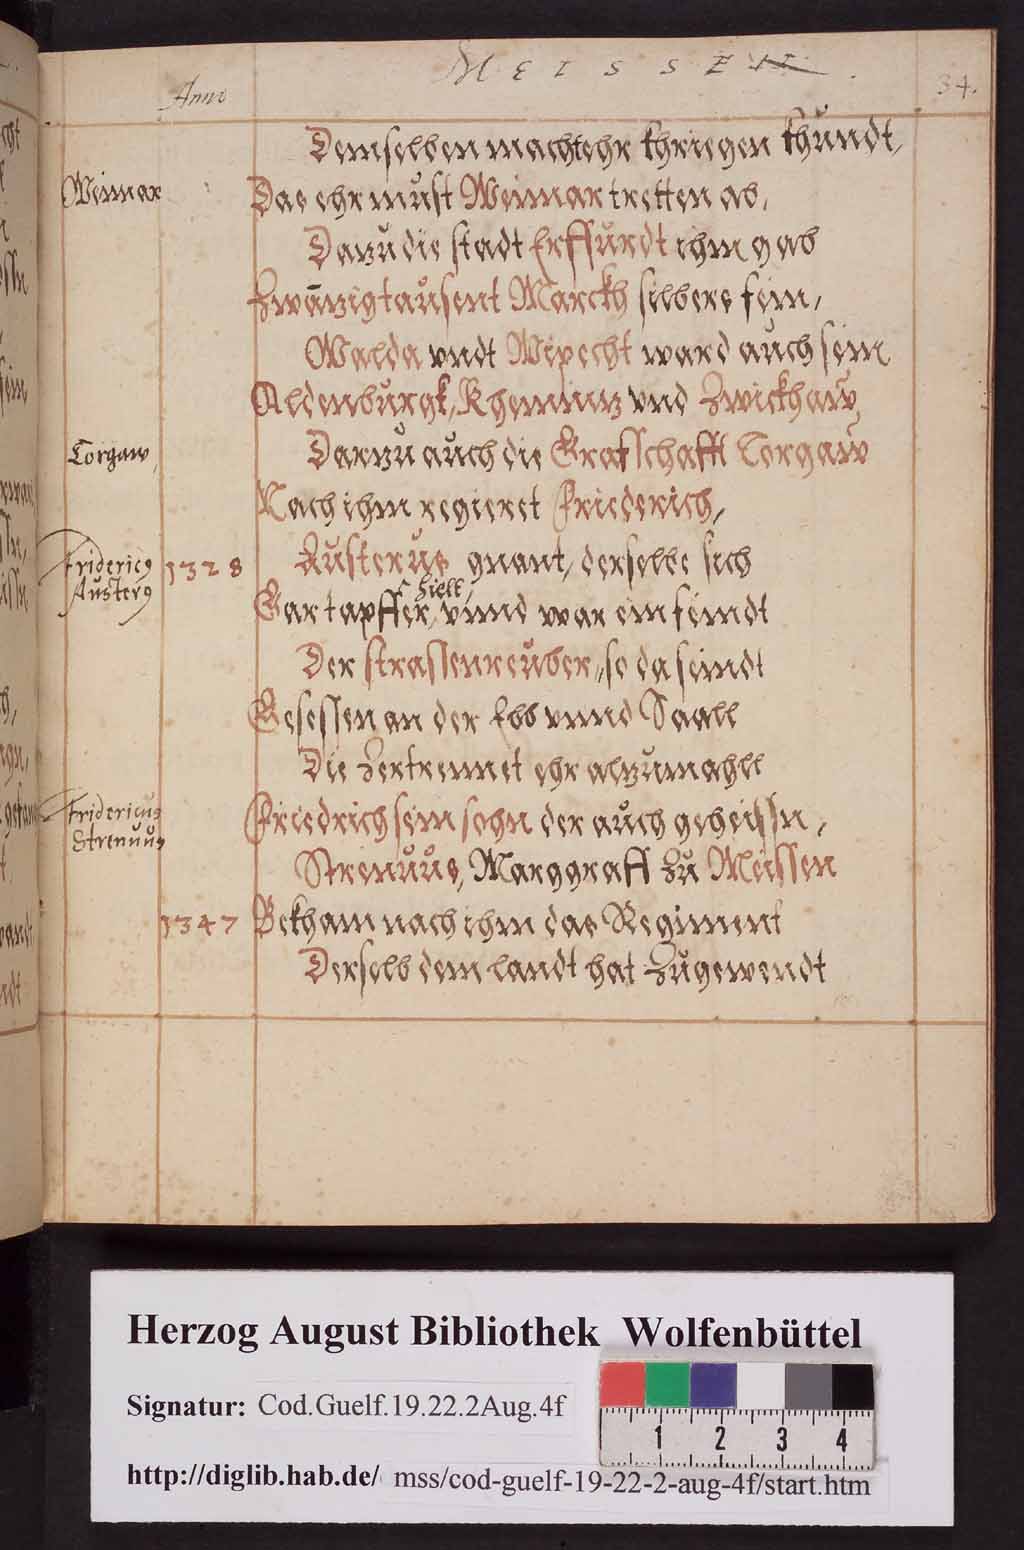 MEISSEN.
34.
Anno
Demselben macht ehr khriegen khundt,
Weimar
Das ehr must Weimar tretten ab,
Dazu die stadt Erffurdt ihm gab
Zwāzigtausent Marckh silbers fein,
Walda vndt Wipecht ward auch sein
Aldenburgk, Khemniz vnd Zwickhaw,
Torgaw,
Darzu auch die Grafschafft Torgaw
Nach ihm regieret Friederich,
Fridericꝰ
1328
Austerus gnant, derselbe sich
Austerꝰ
hielt,
Gar tapffer, vnnd war ein feindt
Der strassenreuber, so da seindt
Gesessen an der Elb vnnd Saall
Die Zertrennet ehr alzumahll
Fridericus
Strenuus
Friedrich sein sohn der auch geheissn,
Strenuus, Marggraff zu Meissen
1347
Bekham nach ihm das Regiment
Derselb dem landt hat Zugewendt
Herzog August Bibliothek Wolfenbüttel
Signatur: Cod.Guelf.19.22.2Aug.4f
1 2 3 4
http://diglib.hab.de/ mss/cod-guelf-19-22-2-aug-4f/start.htm